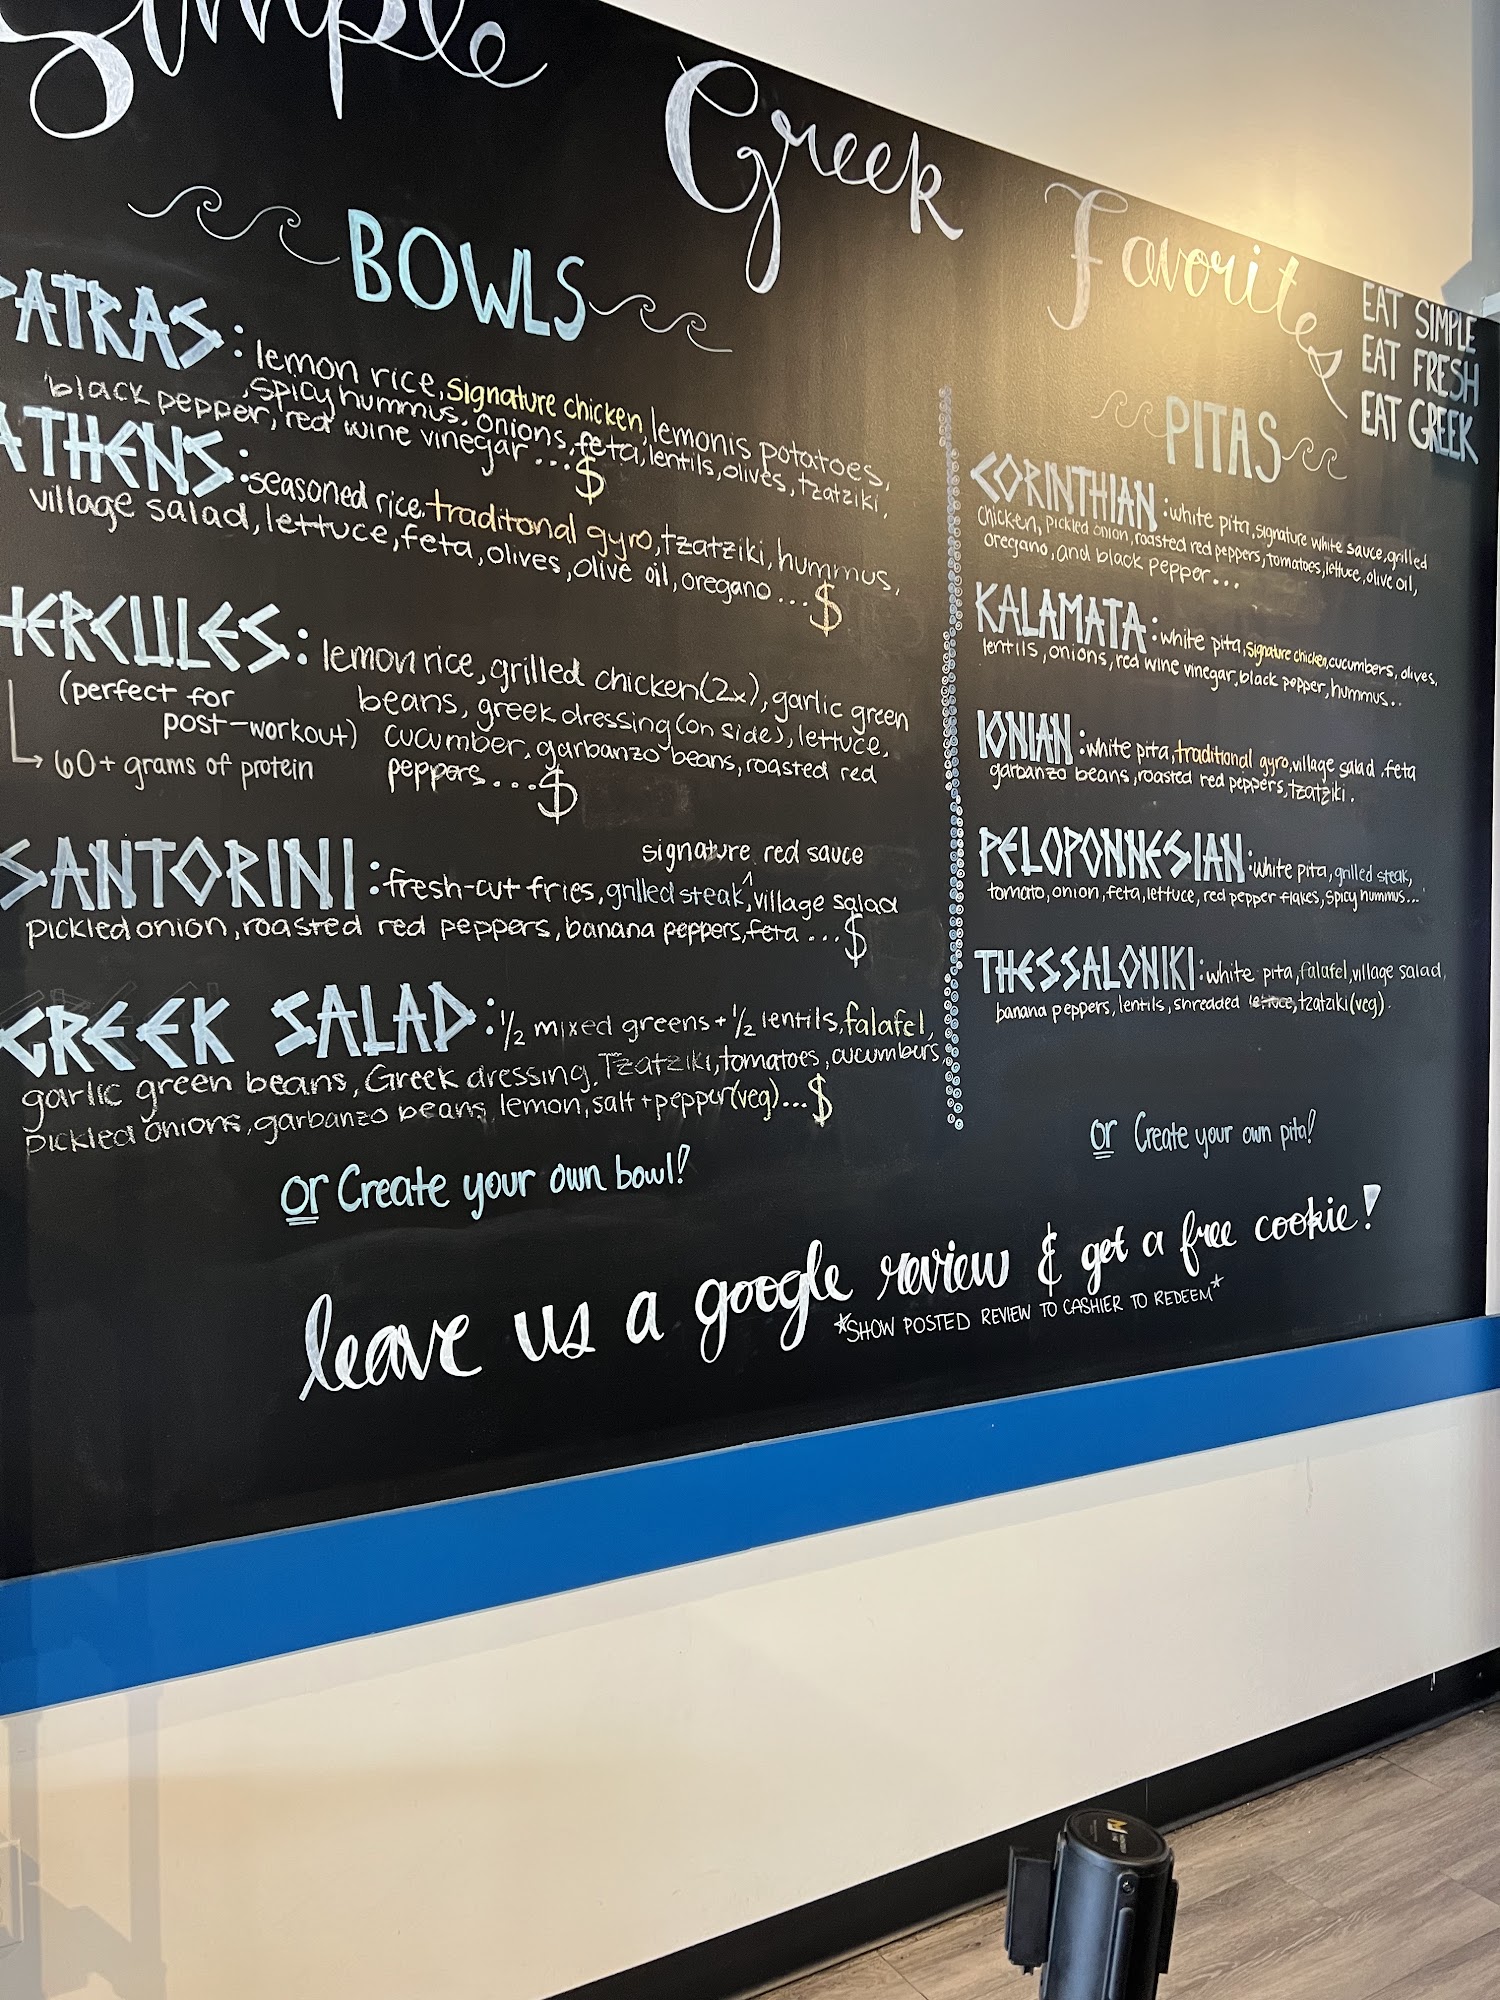 Simple Greek Favorites
EAT SIMPLE
EAT FRESH
EAT GREEK
BOWLS
PATRAS: lemon rice, signature chicken, lemonis potatoes,
, spicy hummus, onions, feta, lentils, olives, tzatziki,
black pepper, red wine vinegar...$
ATHENS: seasoned rice, traditonal gyro, tzatziki, hummus,
village salad, lettuce, feta, olives, olive oil, oregano...$
HERCULES: lemon rice, grilled chicken (2x), garlic green
(perfect for
post-workout)
60+ grams of protein
beans, greek dressing (on side), lettuce,
cucumber, garbanzo beans, roasted red
peppers...$
signature red sauce
SANTORINI: fresh-cut fries, grilled steak, village salad
pickled onion, roasted red peppers, banana peppers, feta...$
GREEK SALAD: 1/2 mixed greens + 1/2 lentils, falafel,
garlic green beans, Greek dressing, Tzatziki, tomatoes, cucumburs,
pickled onions, garbanzo beans, lemon, salt + pepper (veg)...$
or Create your own bowl!
PITAS
CORINTHIAN: white pita, signature white sauce, grilled
chicken, pickled onion, roasted red peppers, tomatoes, lettuce, olive oil,
oregano, and black pepper...
KALAMATA: white pita, signature chicken, cucumbers, olives,
lentils, onions, red wine vinegar, black pepper, hummus..
IONIAN: white pita, traditional gyro, village salad, feta
garbanzo beans, roasted red peppers, tzatziki.
PELOPONNESIAN: white pita, grilled steak,
tomato, onion, feta, lettuce, red pepper flakes, spicy hummus...
THESSALONIKI: white pita, falafel, village salad,
banana peppers, lentils, shredded lettuce, tzatziki (veg).
or Create your own pita!
leave us a google review & get a free cookie!
*SHOW POSTED REVIEW TO CASHIER TO REDEEM*